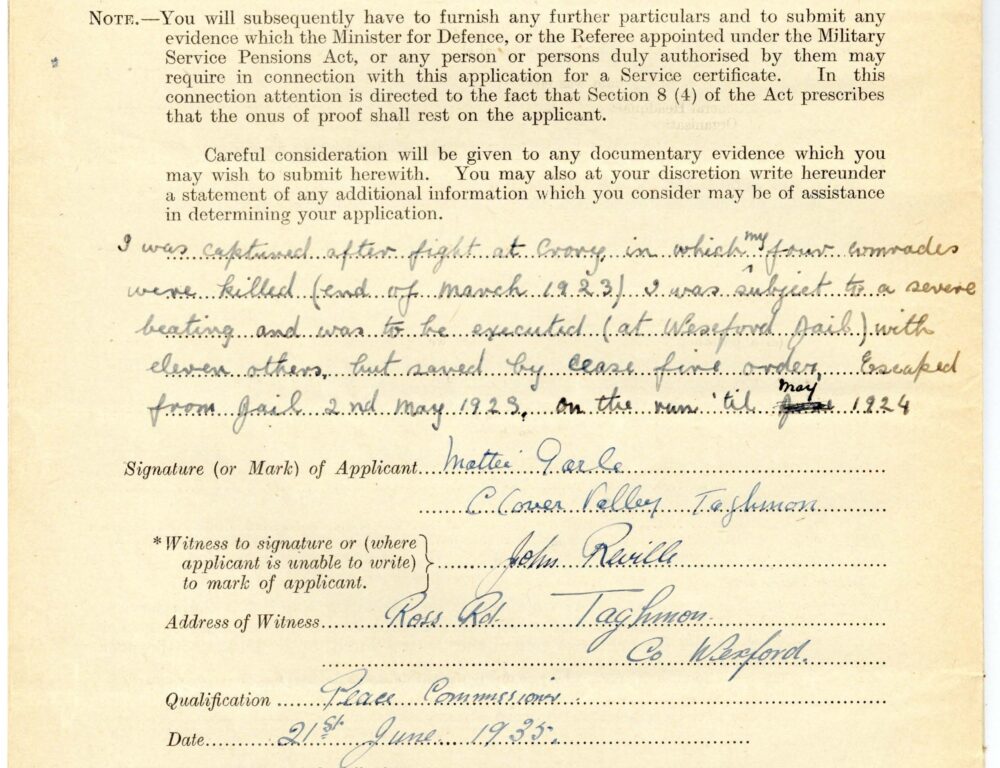 NOTE.—You will subsequently have to furnish any further particulars and to submit any
evidence which the Minister for Defence, or the Referee appointed under the Military
Service Pensions Act, or any person or persons duly authorised by them may
require in connection with this application for a Service certificate. In this
connection attention is directed to the fact that Section 8 (4) of the Act prescribes
that the onus of proof shall rest on the applicant.
Careful consideration will be given to any documentary evidence which you
may wish to submit herewith. You may also at your discretion write hereunder
a statement of any additional information which you consider may be of assistance
in determining your application.
I was captured after fight at Crory in which my four comrades
were killed (end of March 1923) I was subject to a severe
beating and was to be executed (at Wexford Jail) with
eleven others, but saved by cease fire order, Escaped
from Jail 2nd May 1923, on the run 'til May 1924
Signature (or Mark) of Applicant Mattei
Clover Valley Taghmon
*Witness to signature or (where
applicant is unable to write)
to mark of applicant.
John Reville
Address of Witness Ross Rd. Taghmon.
Co Wexford.
Qualification Peace Commissioner
Date 21st June 1935.